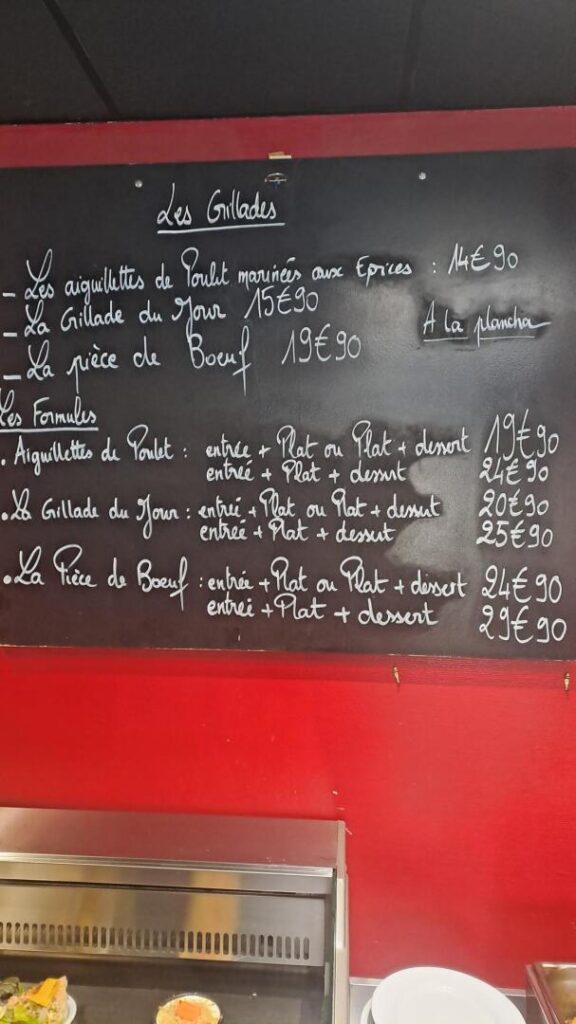 Les Grillades
- Les aiguillettes de Poulet marinées aux Epices : 14€90
- La Grillade du Jour 15€90
A la plancha
- La pièce de Boeuf 19€90
Les Formules
. Aiguillettes de Poulet : entrée + Plat ou Plat + dessert 19€90
entrée + Plat + dessert 24€90
. La Grillade du Jour : entrée + Plat ou Plat + dessert 20€90
entrée + Plat + dessert 25€90
. La Pièce de Boeuf : entrée + Plat ou Plat + dessert 24€90
entrée + Plat + dessert 29€90